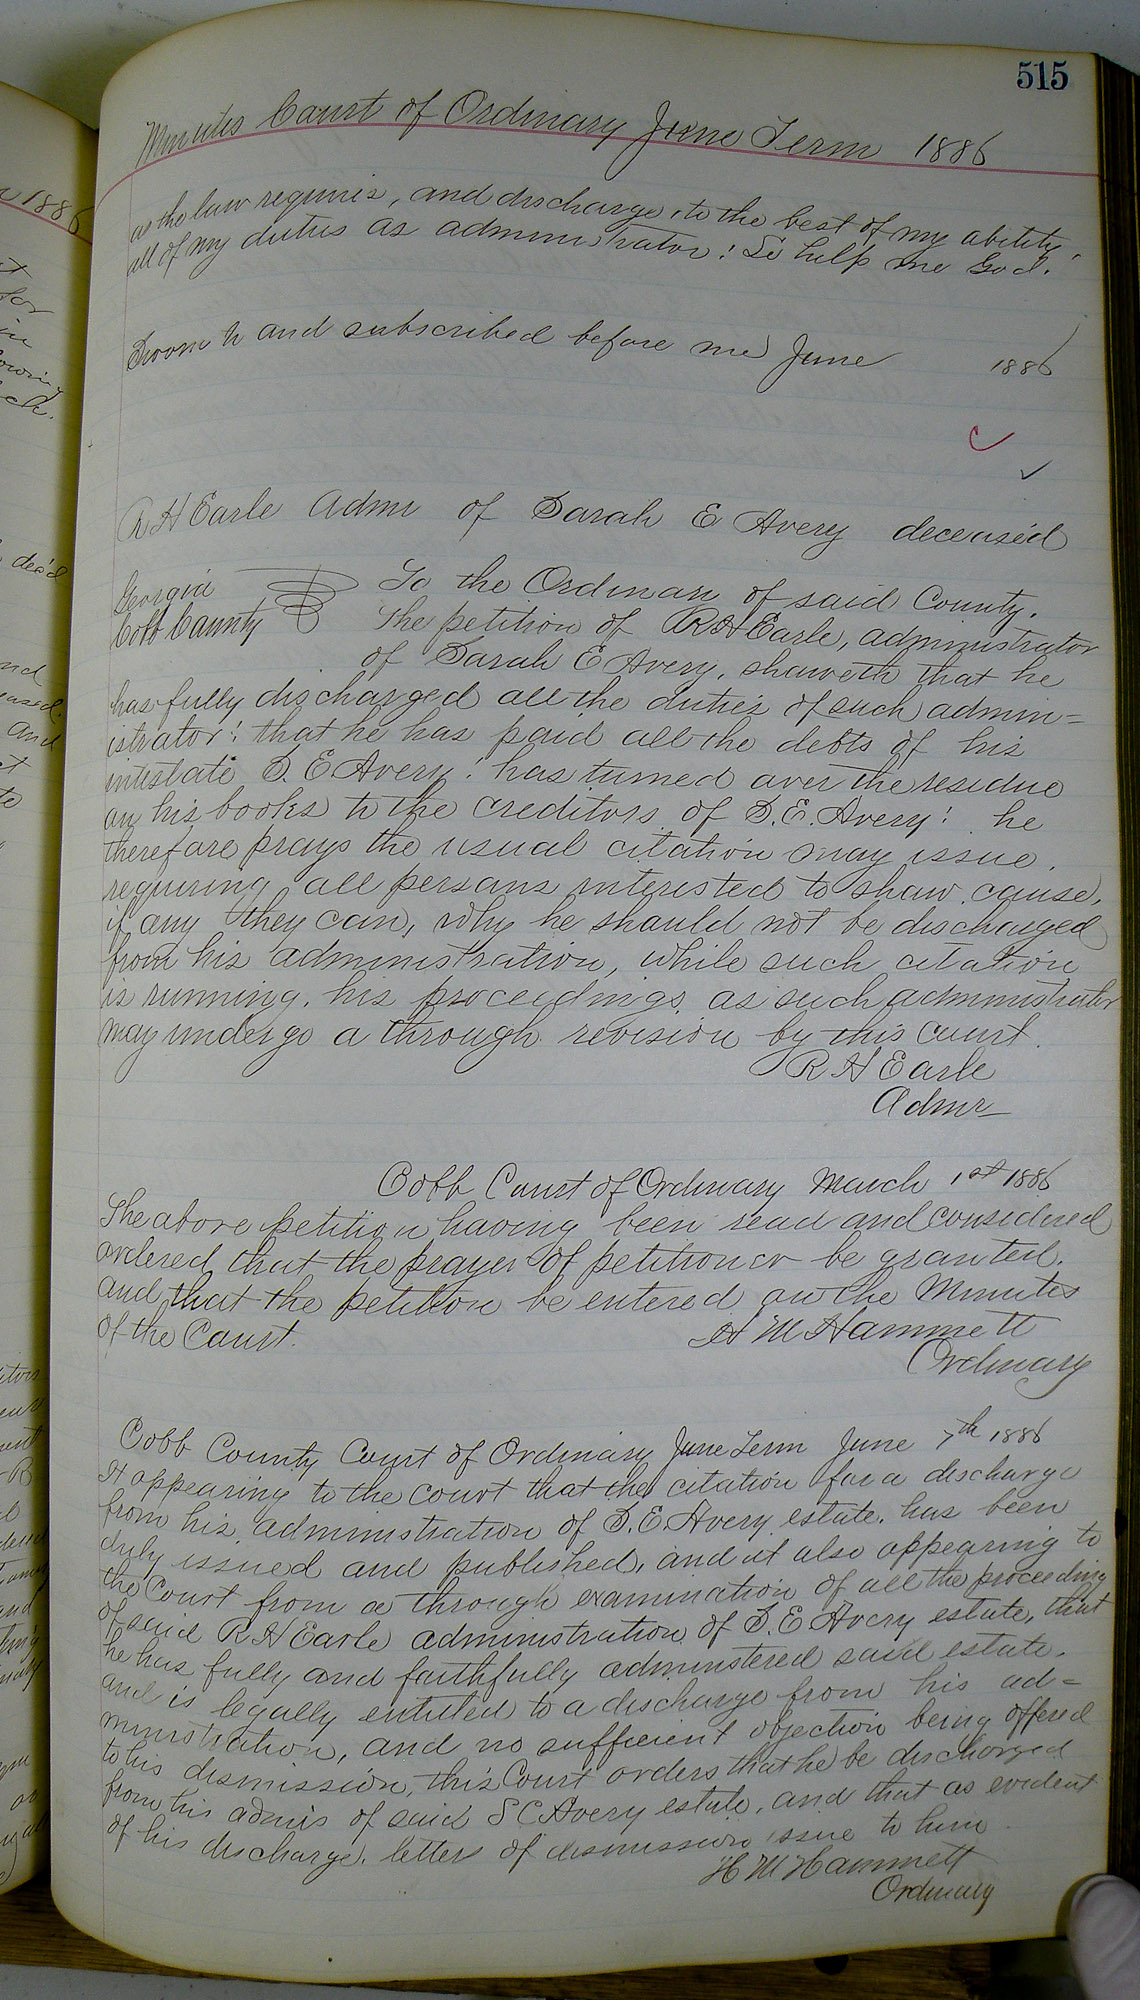 515
Minutes Court of Ordinary June Term 1886
as the law requires, and discharge, to the best of my ability,
all of my duties as administrator: So help me God.
Sworn to and subscribed before me June 1886
R H Earle Admr of Sarah E Avery deceas'd
Georgia To the Ordinary of said County.
Cobb County The petition of R H Earle, administrator
of Sarah E Avery, shaweth that he
has fully discharged all the duties of such admin=
istrator: that he has paid all the debts of his
intestate S. E Avery: has turned over the residue
on his books to the creditors of S. E. Avery: he
therefore prays the usual citation may issue.
requiring all persons interested to shaw cause,
if any they can, why he should not be discharged
from his administration, while such citation
is running. his proceedings as such administrator
may undergo a through revision by this court.
R H Earle
Admr
Cobb Court of Ordinary March 1st 1886
The above petition having been read and considered
ordered that the prayer of petitioner be granted.
and that the petition be entered on the Minutes
of the Court. H M Hammett
Ordinary
Cobb County Court of Ordinary June Term June 7th 1886
It appearing to the court that the citation for a discharge
from his administration of S. E. Avery estate, has been
duly issued and published, and it also appearing to
the Court from a through examination of all the proceeding
of said R H Earle administration of S. E Avery estate, that
he has fully and faithfully administered said estate.
and is legally entitled to a discharge from his ad=
ministration, and no sufficient objection being offered
to his dismission, this Court orders that he be discharged
from his admis of said S E Avery estate, and that as evident
of his discharge. letters of dismission issue to him.
H M Hammett
Ordinary